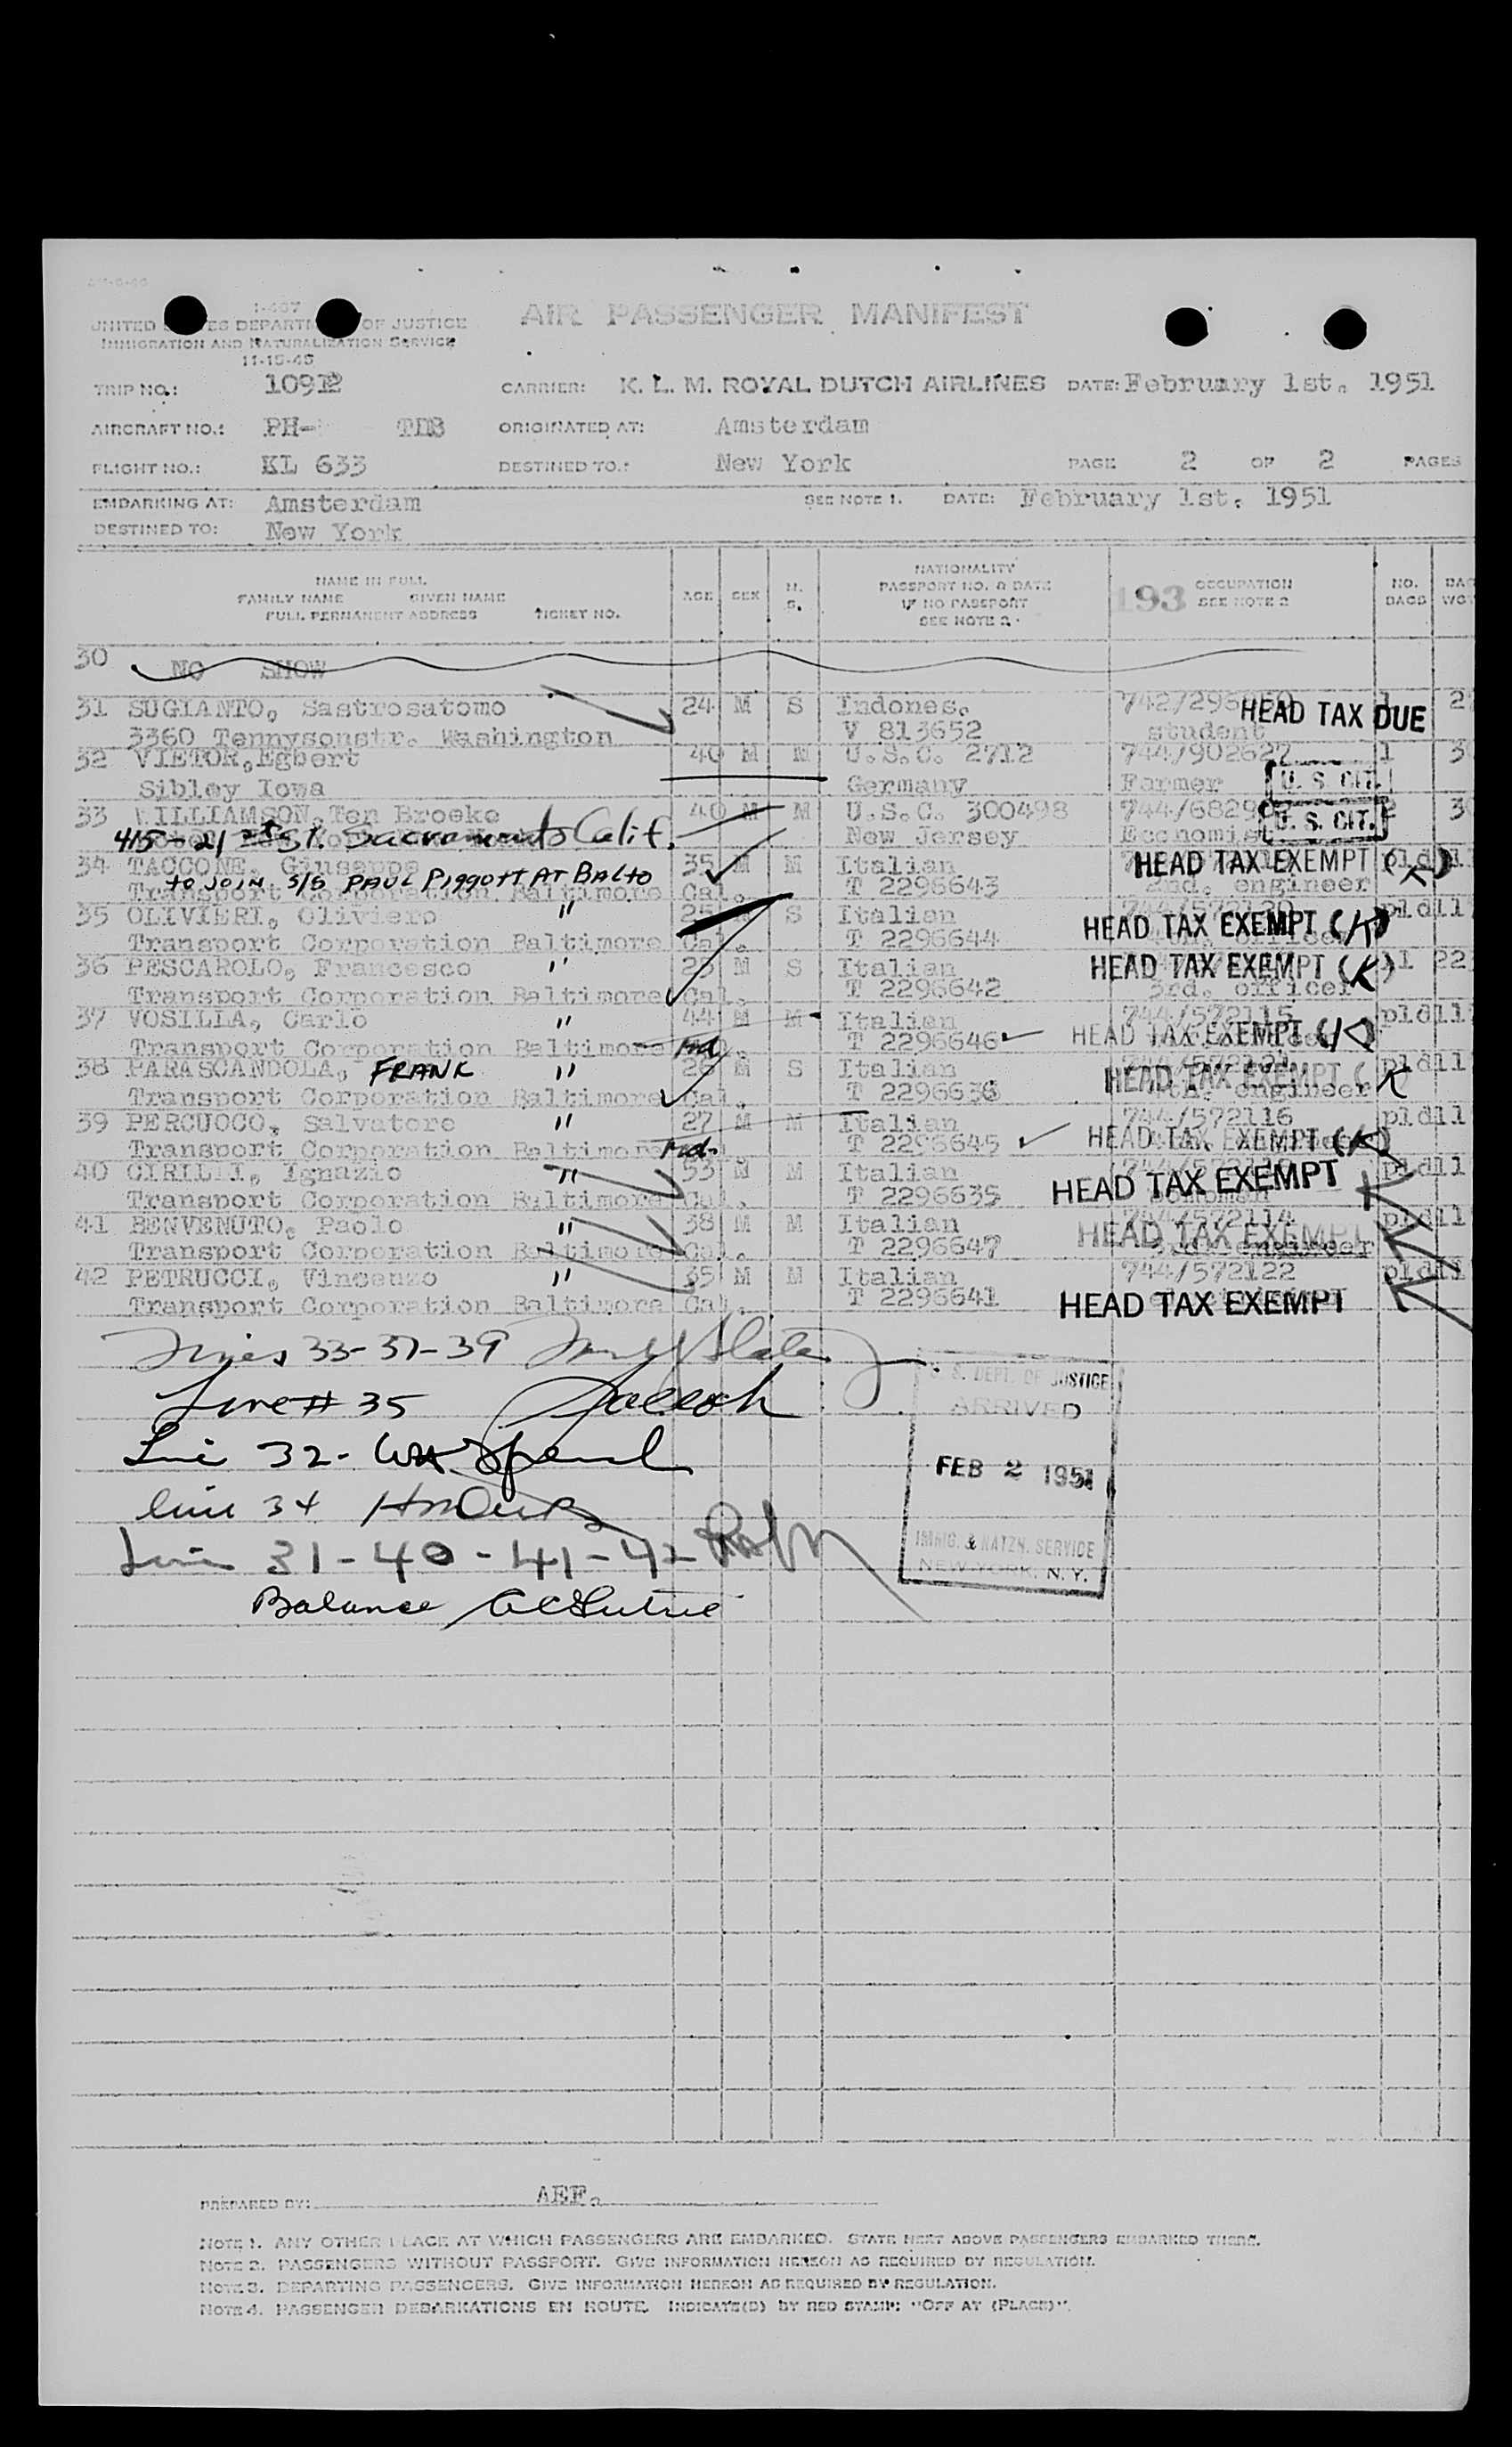 I-467
UNITED STATES DEPARTMENT OF JUSTICE
IMMIGRATION AND NATURALIZATION SERVICE
11-15-45
AIR PASSENGER MANIFEST
TRIP NO.: 10912 CARRIER: K. L. M. ROYAL DUTCH AIRLINES DATE: February 1st. 1951
AIRCRAFT NO.: PH- TDB ORIGINATED AT: Amsterdam
FLIGHT NO.: KL 633 DESTINED TO.: New York PAGE 2 OF 2 PAGES
EMBARKING AT: Amsterdam SEE NOTE 1. DATE: February 1st. 1951
DESTINED TO: New York
NAME IN FULL
FAMILY NAME GIVEN NAME
FULL PERMANENT ADDRESS TICKET NO.
AGE SEX M. S.
NATIONALITY
PASSPORT NO. & DATE
IF NO PASSPORT
SEE NOTE 2.
193 OCCUPATION
SEE NOTE 2
NO. BAGS
30 NO SHOW
31 SUGIANTO, Sastrosatomo 24 M S Indones. 1
3360 Tennysonstr. Washington V 813652 student HEAD TAX DUE
32 VIETOR, Egbert 40 M M U.S.C. 2712 744/902627 1
Sibley Iowa Germany Farmer U.S. CIT.
33 WILLIAMSON, Ten Broeke 40 M M U.S.C. 300498 2
415 - 21st St. Sacramento Calif. New Jersey Economist U.S. CIT.
34 TACCONE, Giuseppe 35 M M Italian HEAD TAX EXEMPT (K) pld11
to JOIN S/S PAUL PIGGOTT AT BALTO
Transport Corporation Baltimore Cal. T 2296643 2nd. engineer
35 OLIVIERI, Oliviero " 25 M S Italian pld11
Transport Corporation Baltimore Cal. T 2296644 HEAD TAX EXEMPT (K)
36 PESCAROLO, Francesco " 25 M S Italian HEAD TAX EXEMPT (K) 1 22
Transport Corporation Baltimore Cal. T 2296642 3rd. officer
37 VOSILLA, Carlo " 44 M M Italian 744/572115 pld11
Transport Corporation Baltimore Md. T 2296646 HEAD TAX EXEMPT (K)
38 PARASCANDOLA, FRANK " 26 M S Italian pld11
Transport Corporation Baltimore Cal. T 2296636 HEAD TAX EXEMPT K
39 PERCUOCO, Salvatore " 27 M M Italian 744/572116 pld11
Transport Corporation Baltimore Md. T 2296645 HEAD TAX EXEMPT (K)
40 CIRILLI, Ignazio " 53 M M Italian pld11
Transport Corporation Baltimore Cal. T 2296635 HEAD TAX EXEMPT
41 BENVENUTO, Paolo " 38 M M Italian 744/572114 pld11
Transport Corporation Baltimore Cal. T 2296647 HEAD TAX EXEMPT 3rd. engineer
42 PETRUCCI, Vincenzo " 35 M M Italian 744/572122 pld11
Transport Corporation Baltimore Cal. T 2296641 HEAD TAX EXEMPT
Lines 33-37-39
Line # 35
Line 32-
line 34
Line 31-40-41-42
Balance
U. S. DEPT. OF JUSTICE
ARRIVED
FEB 2 1951
IMMIG. & NATZN. SERVICE
NEW YORK, N. Y.
PREPARED BY: AEF.
NOTE 1. ANY OTHER PLACE AT WHICH PASSENGERS ARE EMBARKED. STATE NEXT ABOVE PASSENGERS EMBARKED THERE.
NOTE 2. PASSENGERS WITHOUT PASSPORT. GIVE INFORMATION HEREON AS REQUIRED BY REGULATION.
NOTE 3. DEPARTING PASSENGERS. GIVE INFORMATION HEREON AS REQUIRED BY REGULATION.
NOTE 4. PASSENGER DEBARKATIONS EN ROUTE. INDICATE(D) BY RED STAMP: "OFF AT (PLACE)".